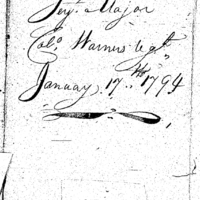 Serj.t Major
Col.o Warners Regt
January. 17..th 1794